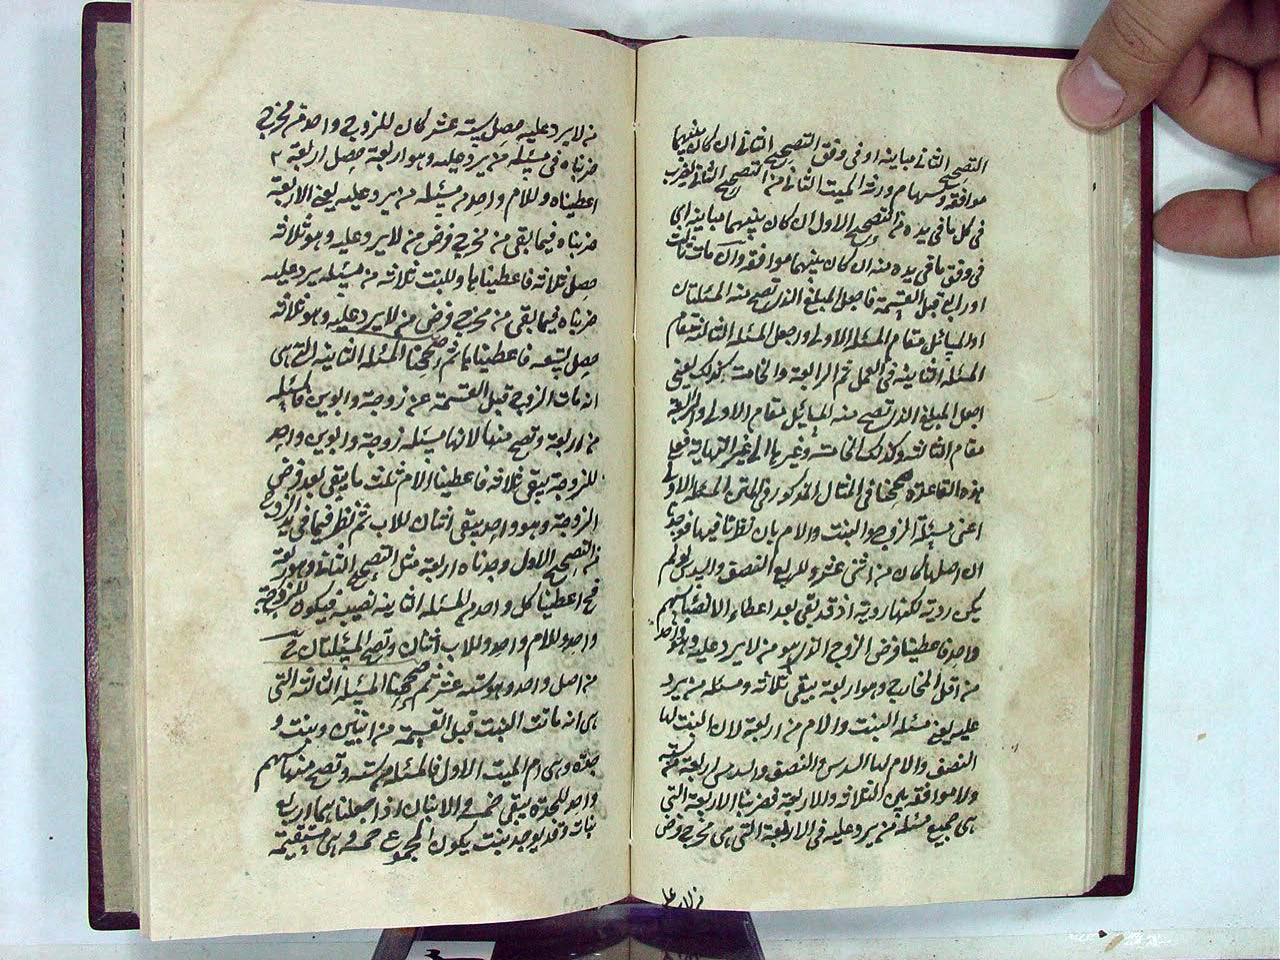 التصحيح الثاني مباينة او في وفق التصحيح الثاني ان كان بينهما
موافقة وسهام ورثة الميت الثاني من التصحيح الثاني يضرب
في كل ما في يده من التصحيح الاول ان كان بينهما مباينة او
في وفق ما في يده منه ان كان بينهما موافقة وان مات ثالث
او رابع قبل القسمة فاجعل المبلغ الذي تصح منه المسئلتان
او المسائل مقام المسئلة الاولى واجعل المسئلة الثالثة مقام
المسئلة الثانية في العمل ثم الرابعة والخامسة كذلك يعني
اجعل المبلغ الذي تصح منه المسائل مقام الاولى والرابعة
مقام الثالثة وكذلك الخامسة وغيرها الى غير النهاية فعلى
هذه القاعدة صححنا في المثال المذكور في المتن المسئلة الاولى
اعني مسئلة الزوج والبنت والام بان نظرنا فيها فوجدنا
ان اصلها كان من اثنى عشر للربع النصف والسدس ولم
يكن ردية لكنها ردية اذ قد بقى بعد اعطاء الانصباء سهم
واحد فاعطينا فرض الزوج الذي هو من لا يرد عليه وهو واحد
من اقل المخارج وهو اربعة يبقى ثلاثة ومسئلة من يرد
عليه يعني مسئلة البنت والام من اربعة لان البنت لها
النصف والام لها السدس والنصف والسدس اربعة من ستة
ولا موافقة بين الثلاثة والاربعة فضربنا الاربعة التي
هي جميع مسئلة من يرد عليه في الاربعة التي هي مخرج فرض
من لا يرد عليه
من لا يرد عليه حصل ستة عشر كان للزوج واحد من مخرج
ضربناه في مسئلة من يرد عليه وهو اربعة حصل اربعة
اعطيناه وللام واحد من مسئلة من يرد عليه يعني الاربعة
ضربناه فيما بقى من مخرج فرض من لا يرد عليه وهو ثلاثة
حصل ثلاثة فاعطيناها وللبنت ثلاثة من مسئلة يرد عليه
ضربناه فيما بقى من مخرج فرض من لا يرد عليه وهو ثلاثة
حصل تسعة فاعطيناها ثم صححنا المسئلة الثانية التي هي
انه مات الزوج قبل القسمة عن زوجة وابوين فالمسئلة
من اربعة وتصح منها لانها مسئلة زوجة وابوين واحد
للزوجة يبقى ثلاثة فاعطينا الام ثلث ما يبقى بعد فرض
الزوجة وهو واحد يبقى اثنان للاب ثم نظر فيما في يد الزوج
من التصحيح الاول وجدناه اربعة مثل التصحيح الثاني وهو اربعة
فح اعطينا كل واحد من المسئلة الثانية نصيبه فيكون للزوجة
واحد وللام واحد وللاب اثنان وتصح المسئلتان
من اصل واحد وهو ستة عشر ثم صححنا المسئلة الثالثة التي
هي انه ماتت البنت قبل القسمة من ابنين وبنت و
جدة وهي ام الميت الاول فالمسئلة من ستة وتصح منها سهم
واحد للجدة يبقى خمسة والابنان اذا جعلناهما اربع
بنات وقد يوجد بنت يكون المجموع خمسة وهي مستقيمة